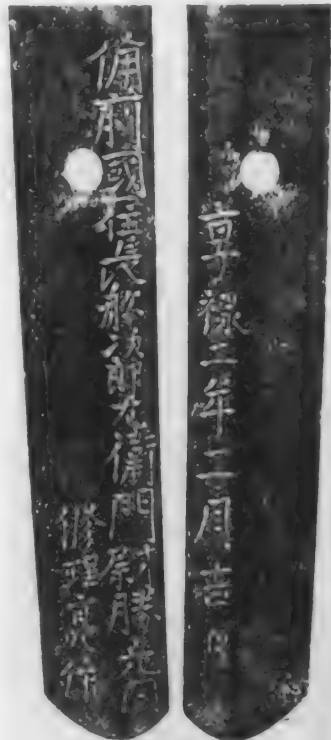 備前國住長船次郎左衛門尉勝光同
修理亮作
享禄三年二月吉日